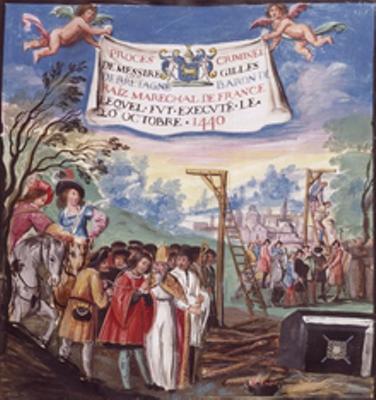 PROCES CRIMINEL
DE MESSIRE GILLES
DE BRETAGNE BARON DE
RAIZ MARECHAL DE FRANCE
LEQVEL · FVT · EXECVTÉ · LE ·
20 OCTOBRE · 1440